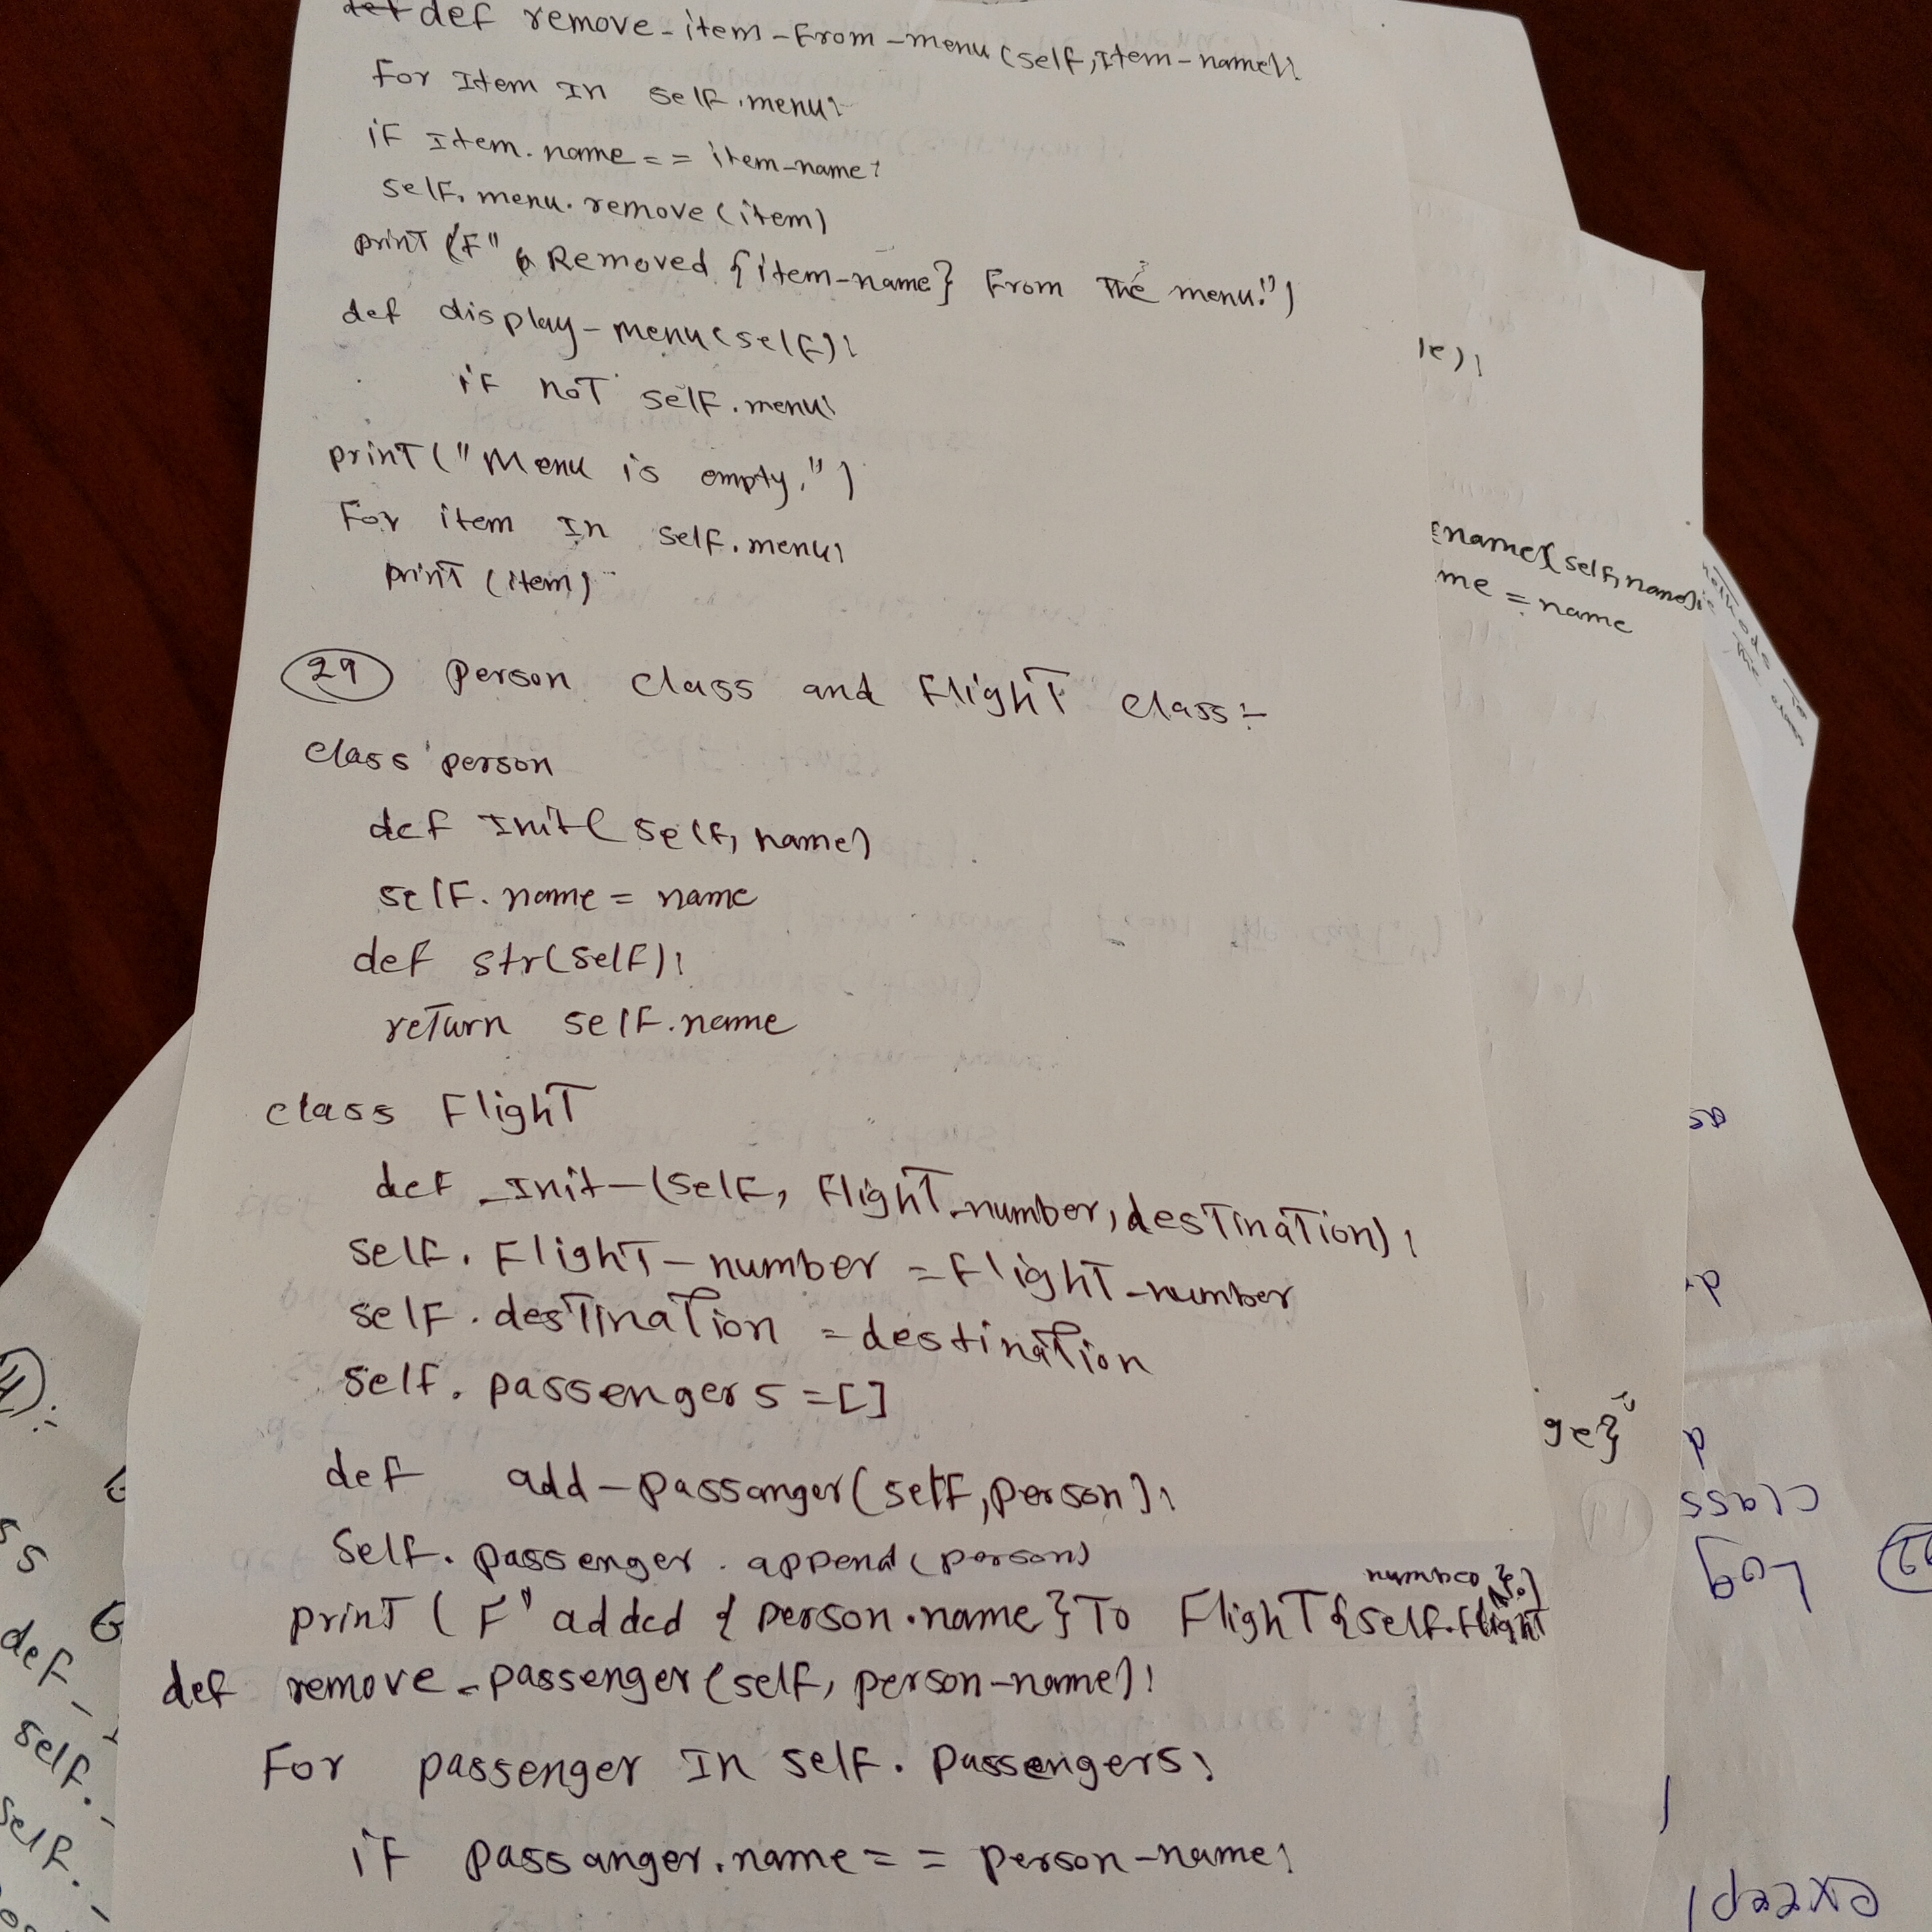 def remove-item-From-menu(self,Item-name):
For Item In self.menu:
if Item.name == item-name:
self.menu.remove(item)
print(F" Removed {item-name} From The menu.")
def display-menu(self):
if not self.menu:
print("Menu is empty.")
For item In self.menu:
print(item)
29 person class and Flight class:-
class person
def Init(self, name)
self.name = name
def str(self):
return self.name
class Flight
def _Init_(self, flight_number, destination):
self.Flight-number = flight_number
self.destination = destination
self.passengers = []
def add-passanger(self, person):
Self.passenger.append(person)
print(F" added {person.name} To Flight {self.flight
number}.")
def remove-passenger(self, person-name):
For passenger In self.passengers:
if passanger.name == person-name:
le):
name(self, name):
me = name
ge}
class
Log
except
ss
def -
self.
self.